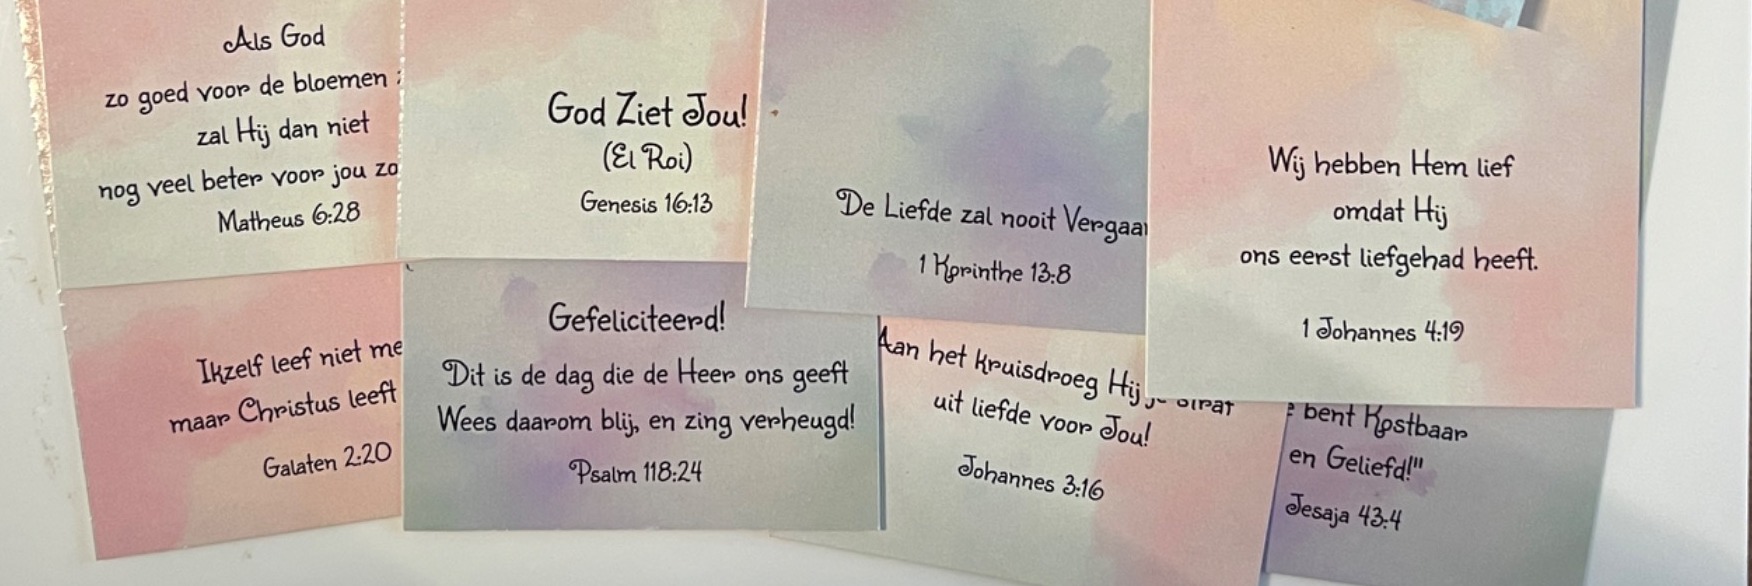 Als God
zo goed voor de bloemen
zal Hij dan niet
nog veel beter voor jou zo
Matheus 6:28
God Ziet Jou!
(El Roi)
Genesis 16:13
De Liefde zal nooit Vergaa
1 Korinthe 13:8
Wij hebben Hem lief
omdat Hij
ons eerst liefgehad heeft.
1 Johannes 4:19
Ikzelf leef niet me
maar Christus leeft
Galaten 2:20
Gefeliciteerd!
Dit is de dag die de Heer ons geeft
Wees daarom blij, en zing verheugd!
Psalm 118:24
Aan het kruisdroeg Hij je straf
uit liefde voor Jou!
Johannes 3:16
bent Kostbaar
en Geliefd!"
Jesaja 43:4